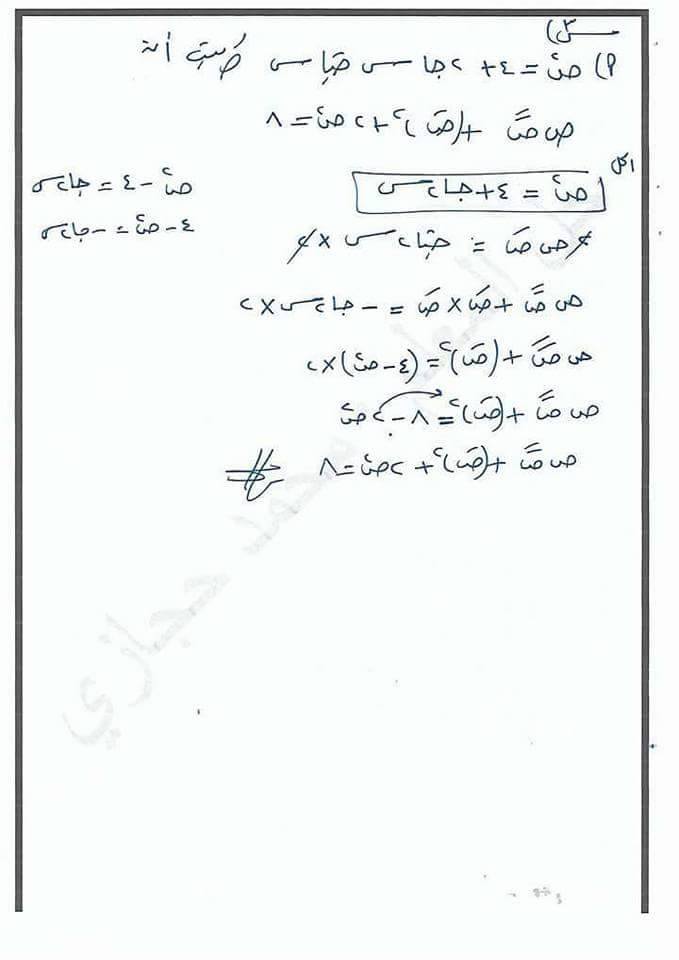 س٣)
P) ص٢ = ٤ + ٢ جاس جتاس أثبت أن
ص صً + (صَ)٢ + ٢ ص٢ = ٨
الحل
ص٢ = ٤ + جا٢س
ص٢ - ٤ = جا٢س
٤ - ص٢ = - جا٢س
٢ ص صَ = جتا٢س × ٢
ص صً + صَ × صَ = - جا٢س × ٢
ص صً + (صَ)٢ = (٤ - ص٢) × ٢
ص صً + (صَ)٢ = ٨ - ٢ ص٢
ص صً + (صَ)٢ + ٢ ص٢ = ٨
محمد حجازي